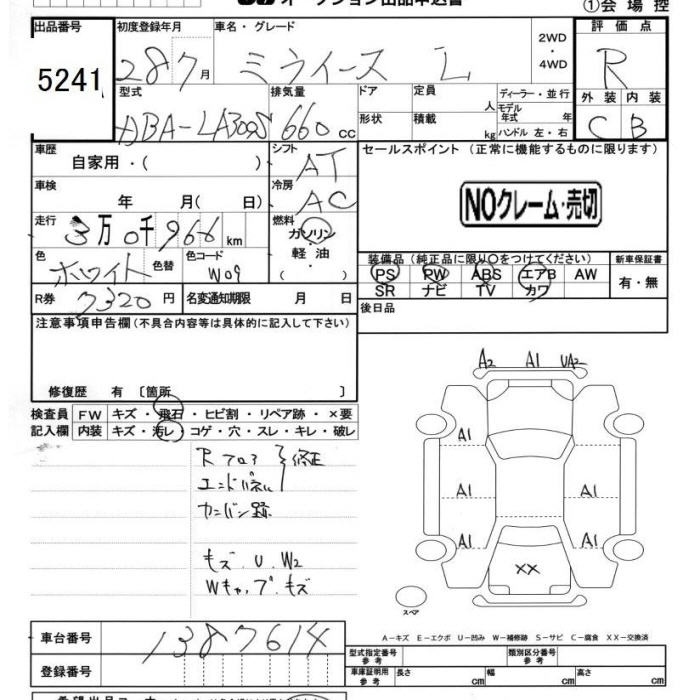 オークション出品申込書 ①会場控
出品番号 初度登録年月 車名・グレード 評価点
5241 28 7月 ミライース L 2WD ・ 4WD R
型式 排気量 ドア 定員 人 ディーラー・並行 外装 内装
DBA-LA300S 660cc 形状 積載 kg モデル年式 年 ハンドル 左・右 C B
車歴 自家用・( ) シフト AT セールスポイント (正常に機能するものに限ります)
車検 年 月( 日) 冷房 AC NOクレーム・売切
走行 3万0千966km 燃料 ガソリン・軽油・( )
装備品 (純正品に限り○をつけてください) 新車保証書
色 ホワイト 色替 色コード W09 PS PW ABS エアB AW 有・無
SR ナビ TV カワ
R券 7320円 名変通知期限 月 日 後日品
注意事項申告欄(不具合内容等は具体的に記入して下さい)
修復歴 有 〔箇所 〕
検査員 FW キズ・飛石・ヒビ割・リペア跡・×要
記入欄 内装 キズ・汚レ・コゲ・穴・スレ・キレ・破レ
Rフロア 修正
エンドパネル
カンバン跡
キズ.U.W2
Wキャップ.キズ
A2 A1 UA2
A1
A1 A1
A1 A1
XX
スペア
A-キズ E-エクボ U-凹み W-補修跡 S-サビ C-腐食 XX-交換済
車台番号 1387614 型式指定番号 参考 類別区分番号 参考
登録番号 車庫証明用 参考 長さ cm 幅 cm 高さ cm
希望出品コーナー